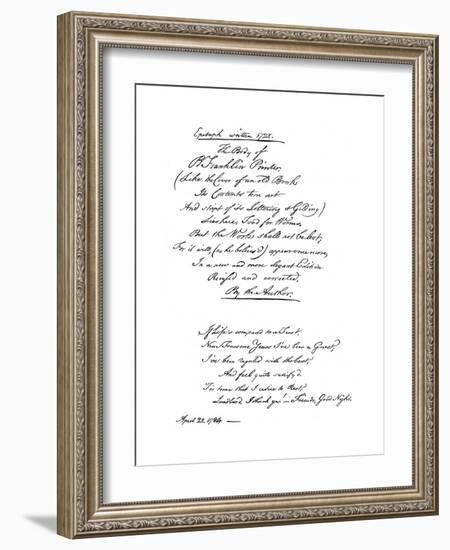 Epitaph written 1728.
The Body of
B Franklin Printer,
(Like the Cover of an old Book
Its Contents torn out
And stript of its Lettering & Gilding)
Lies here, Food for Worms.
But the Work shall not be lost;
For it will, (as he believ'd) appear once more,
In a new and more elegant Edition
Revised and corrected,
By the Author.
If Life's compared to a Feast,
Near Fourscore Years I've been a Guest;
I've been regaled with the best,
And feel quite satisfy'd.
'Tis time that I retire to Rest;
Landlord, I thank ye! — Friends, Good Night.
April 22, 1784 —